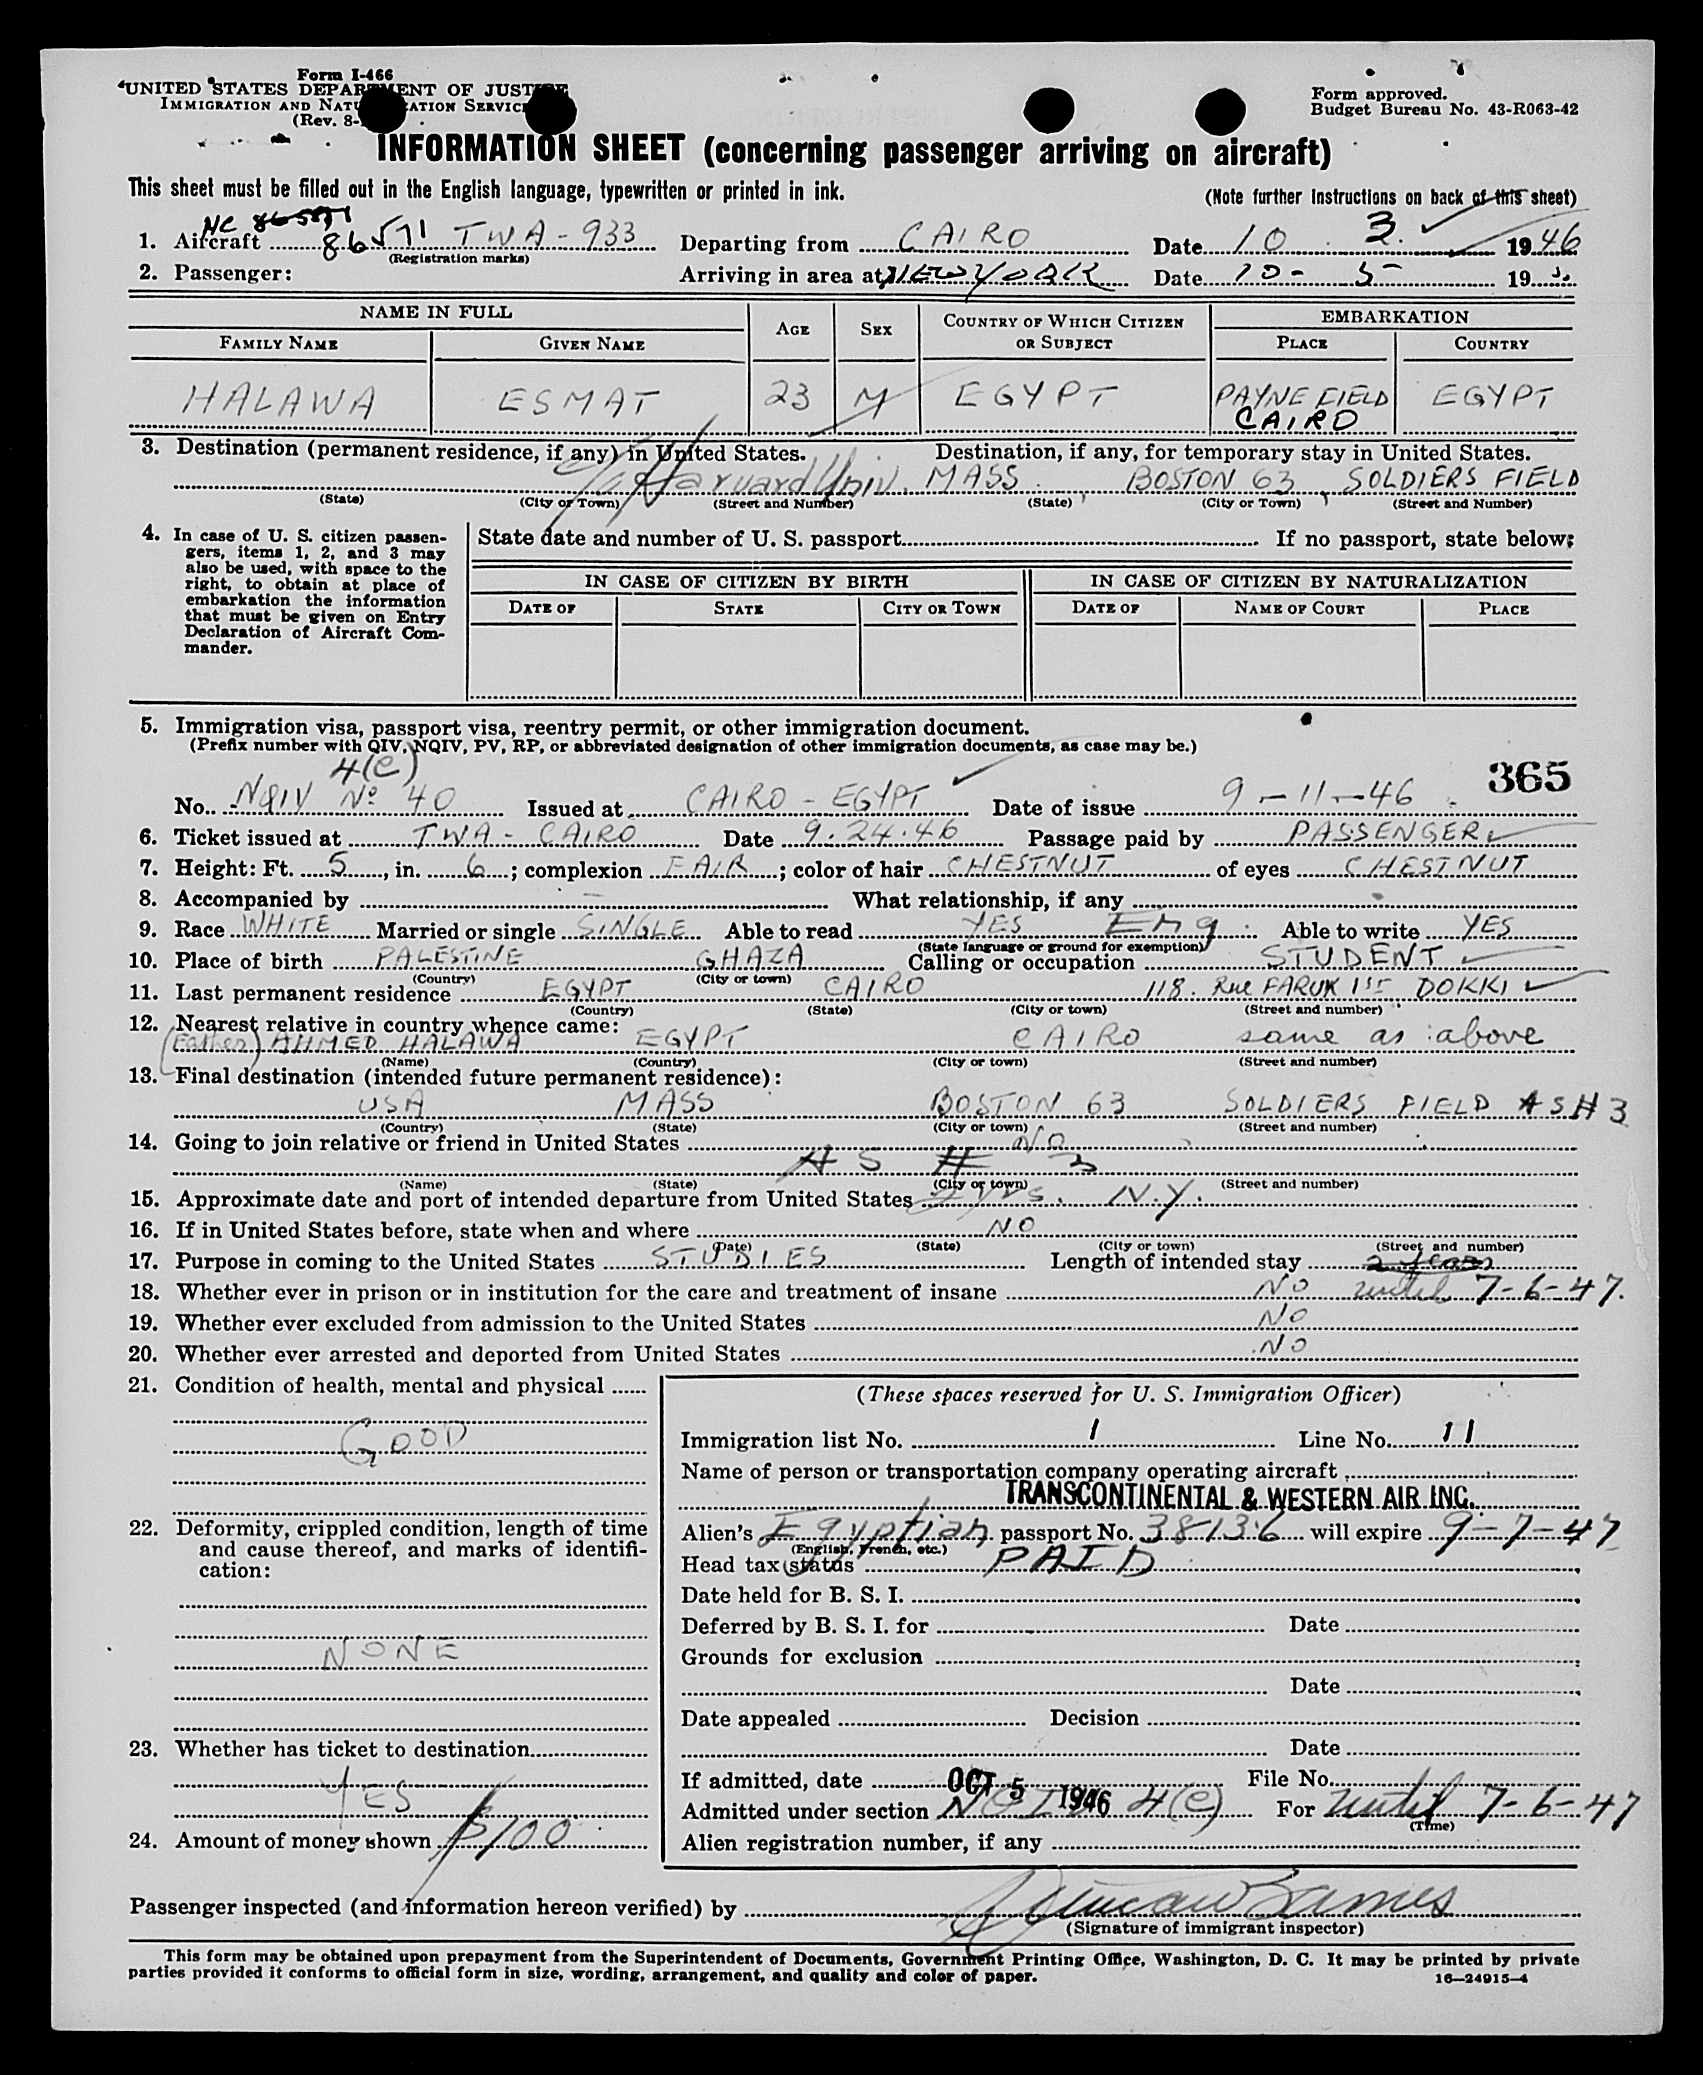 Form I-466
UNITED STATES DEPARTMENT OF JUSTICE
IMMIGRATION AND NATURALIZATION SERVICE
(Rev. 8-
Form approved.
Budget Bureau No. 43-R063-42
INFORMATION SHEET (concerning passenger arriving on aircraft)
This sheet must be filled out in the English language, typewritten or printed in ink.
(Note further instructions on back of this sheet)
NC
1. Aircraft 86571 TWA-933 Departing from CAIRO Date 10 3. 1946
(Registration marks)
2. Passenger: Arriving in area at NEW YORK Date 10-5 19
NAME IN FULL AGE SEX COUNTRY OF WHICH CITIZEN OR SUBJECT EMBARKATION
FAMILY NAME GIVEN NAME PLACE COUNTRY
HALAWA ESMAT 23 M EGYPT PAYNE FIELD CAIRO EGYPT
3. Destination (permanent residence, if any) in United States. Destination, if any, for temporary stay in United States.
Harvard Univ. MASS. BOSTON 63, SOLDIERS FIELD
(State) (City or Town) (Street and Number) (State) (City or Town) (Street and Number)
4. In case of U. S. citizen passengers, items 1, 2, and 3 may also be used, with space to the right, to obtain at place of embarkation the information that must be given on Entry Declaration of Aircraft Commander.
State date and number of U. S. passport If no passport, state below:
IN CASE OF CITIZEN BY BIRTH IN CASE OF CITIZEN BY NATURALIZATION
DATE OF STATE CITY OR TOWN DATE OF NAME OF COURT PLACE
5. Immigration visa, passport visa, reentry permit, or other immigration document.
(Prefix number with QIV, NQIV, PV, RP, or abbreviated designation of other immigration documents, as case may be.)
4(e)
365
No. NQIV No 40 Issued at CAIRO - EGYPT Date of issue 9-11-46
6. Ticket issued at TWA - CAIRO Date 9.24.46 Passage paid by PASSENGER
7. Height: Ft. 5, in. 6; complexion FAIR; color of hair CHESTNUT of eyes CHESTNUT
8. Accompanied by - What relationship, if any
9. Race WHITE Married or single SINGLE Able to read YES Eng Able to write YES
(State language or ground for exemption)
10. Place of birth PALESTINE GHAZA Calling or occupation STUDENT
(Country) (City or town)
11. Last permanent residence EGYPT CAIRO 118. Rue FARUK 1st DOKKI
(Country) (State) (City or town) (Street and number)
12. Nearest relative in country whence came:
(Father) AHMED HALAWA EGYPT CAIRO same as above
(Name) (Country) (City or town) (Street and number)
13. Final destination (intended future permanent residence):
USA MASS BOSTON 63 SOLDIERS FIELD A S H 3
(Country) (State) (City or town) (Street and number)
14. Going to join relative or friend in United States NO
A S H 3
(Name) (State) (City or town) (Street and number)
15. Approximate date and port of intended departure from United States 2 yrs. N.Y.
16. If in United States before, state when and where NO
(Date) (State) (City or town) (Street and number)
17. Purpose in coming to the United States STUDIES Length of intended stay 2 years
18. Whether ever in prison or in institution for the care and treatment of insane NO until 7-6-47.
19. Whether ever excluded from admission to the United States NO
20. Whether ever arrested and deported from United States NO
21. Condition of health, mental and physical
GOOD
22. Deformity, crippled condition, length of time and cause thereof, and marks of identification:
NONE
23. Whether has ticket to destination
YES
24. Amount of money shown $100
(These spaces reserved for U. S. Immigration Officer)
Immigration list No. 1 Line No. 11
Name of person or transportation company operating aircraft
TRANSCONTINENTAL & WESTERN AIR INC.
Alien's Egyptian passport No. 38136 will expire 9-7-47
(English, French, etc.)
Head tax status PAID
Date held for B. S. I.
Deferred by B. S. I. for Date
Grounds for exclusion
Date
Date appealed Decision
Date
If admitted, date OCT 5 1946 File No.
Admitted under section 4(e) For until 7-6-47
(Time)
Alien registration number, if any
Passenger inspected (and information hereon verified) by
(Signature of immigrant inspector)
This form may be obtained upon prepayment from the Superintendent of Documents, Government Printing Office, Washington, D. C. It may be printed by private
parties provided it conforms to official form in size, wording, arrangement, and quality and color of paper.
16—24915-4